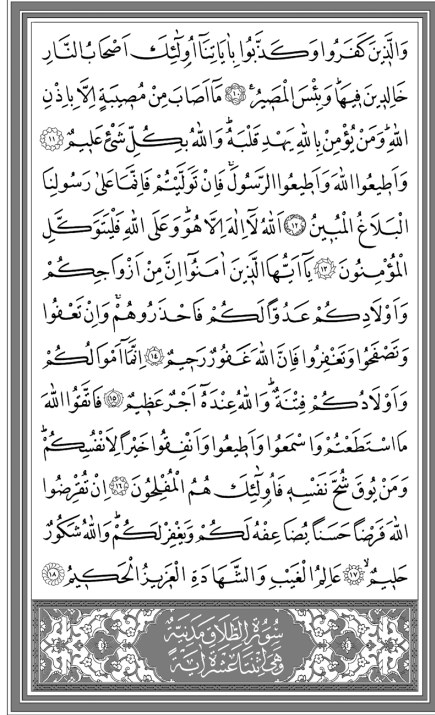 وَالَّذِينَ كَفَرُوا وَكَذَّبُوا بِاٰيَاتِنَٓا اُو۬لٰٓئِكَ اَصْحَابُ النَّارِ
خَالِدِينَ فِيهَاۜ وَبِئْسَ الْمَصِيرُ۟ ﴿١٠﴾ مَٓا اَصَابَ مِنْ مُصِيبَةٍ اِلَّا بِاِذْنِ
اللّٰهِۜ وَمَنْ يُؤْمِنْ بِاللّٰهِ يَهْدِ قَلْبَهُۜ وَاللّٰهُ بِكُلِّ شَيْءٍ عَلِيمٌ ﴿١١﴾
وَاَطِيعُوا اللّٰهَ وَاَطِيعُوا الرَّسُولَۚ فَاِنْ تَوَلَّيْتُمْ فَاِنَّمَا عَلٰى رَسُولِنَا
الْبَلَاغُ الْمُبِينُ ﴿١٢﴾ اَللّٰهُ لَٓا اِلٰهَ اِلَّا هُوَۜ وَعَلَى اللّٰهِ فَلْيَتَوَكَّلِ
الْمُؤْمِنُونَ ﴿١٣﴾ يَٓا اَيُّهَا الَّذِينَ اٰمَنُٓوا اِنَّ مِنْ اَزْوَاجِكُمْ
وَاَوْلَادِكُمْ عَدُوًّا لَكُمْ فَاحْذَرُوهُمْۚ وَاِنْ تَعْفُوا
وَتَصْفَحُوا وَتَغْفِرُوا فَاِنَّ اللّٰهَ غَفُورٌ رَحِيمٌ ﴿١٤﴾ اِنَّمَٓا اَمْوَالُكُمْ
وَاَوْلَادُكُمْ فِتْنَةٌۜ وَاللّٰهُ عِنْدَهُٓ اَجْرٌ عَظِيمٌ ﴿١٥﴾ فَاتَّقُوا اللّٰهَ
مَا اسْتَطَعْتُمْ وَاسْمَعُوا وَاَطِيعُوا وَاَنْفِقُوا خَيْرًا لِاَنْفُسِكُمْۜ
وَمَنْ يُوقَ شُحَّ نَفْسِهِ فَاُو۬لٰٓئِكَ هُمُ الْمُفْلِحُونَ ﴿١٦﴾ اِنْ تُقْرِضُوا
اللّٰهَ قَرْضًا حَسَنًا يُضَاعِفْهُ لَكُمْ وَيَغْفِرْ لَكُمْۜ وَاللّٰهُ شَكُورٌ
حَلِيمٌۙ ﴿١٧﴾ عَالِمُ الْغَيْبِ وَالشَّهَادَةِ الْعَزِيزُ الْحَكِيمُ ﴿١٨﴾
سُورَةُ الطَّلَاقِ مَدَنِيَّةٌ
وَهِيَ اثْنَتَا عَشْرَةَ اٰيَةً